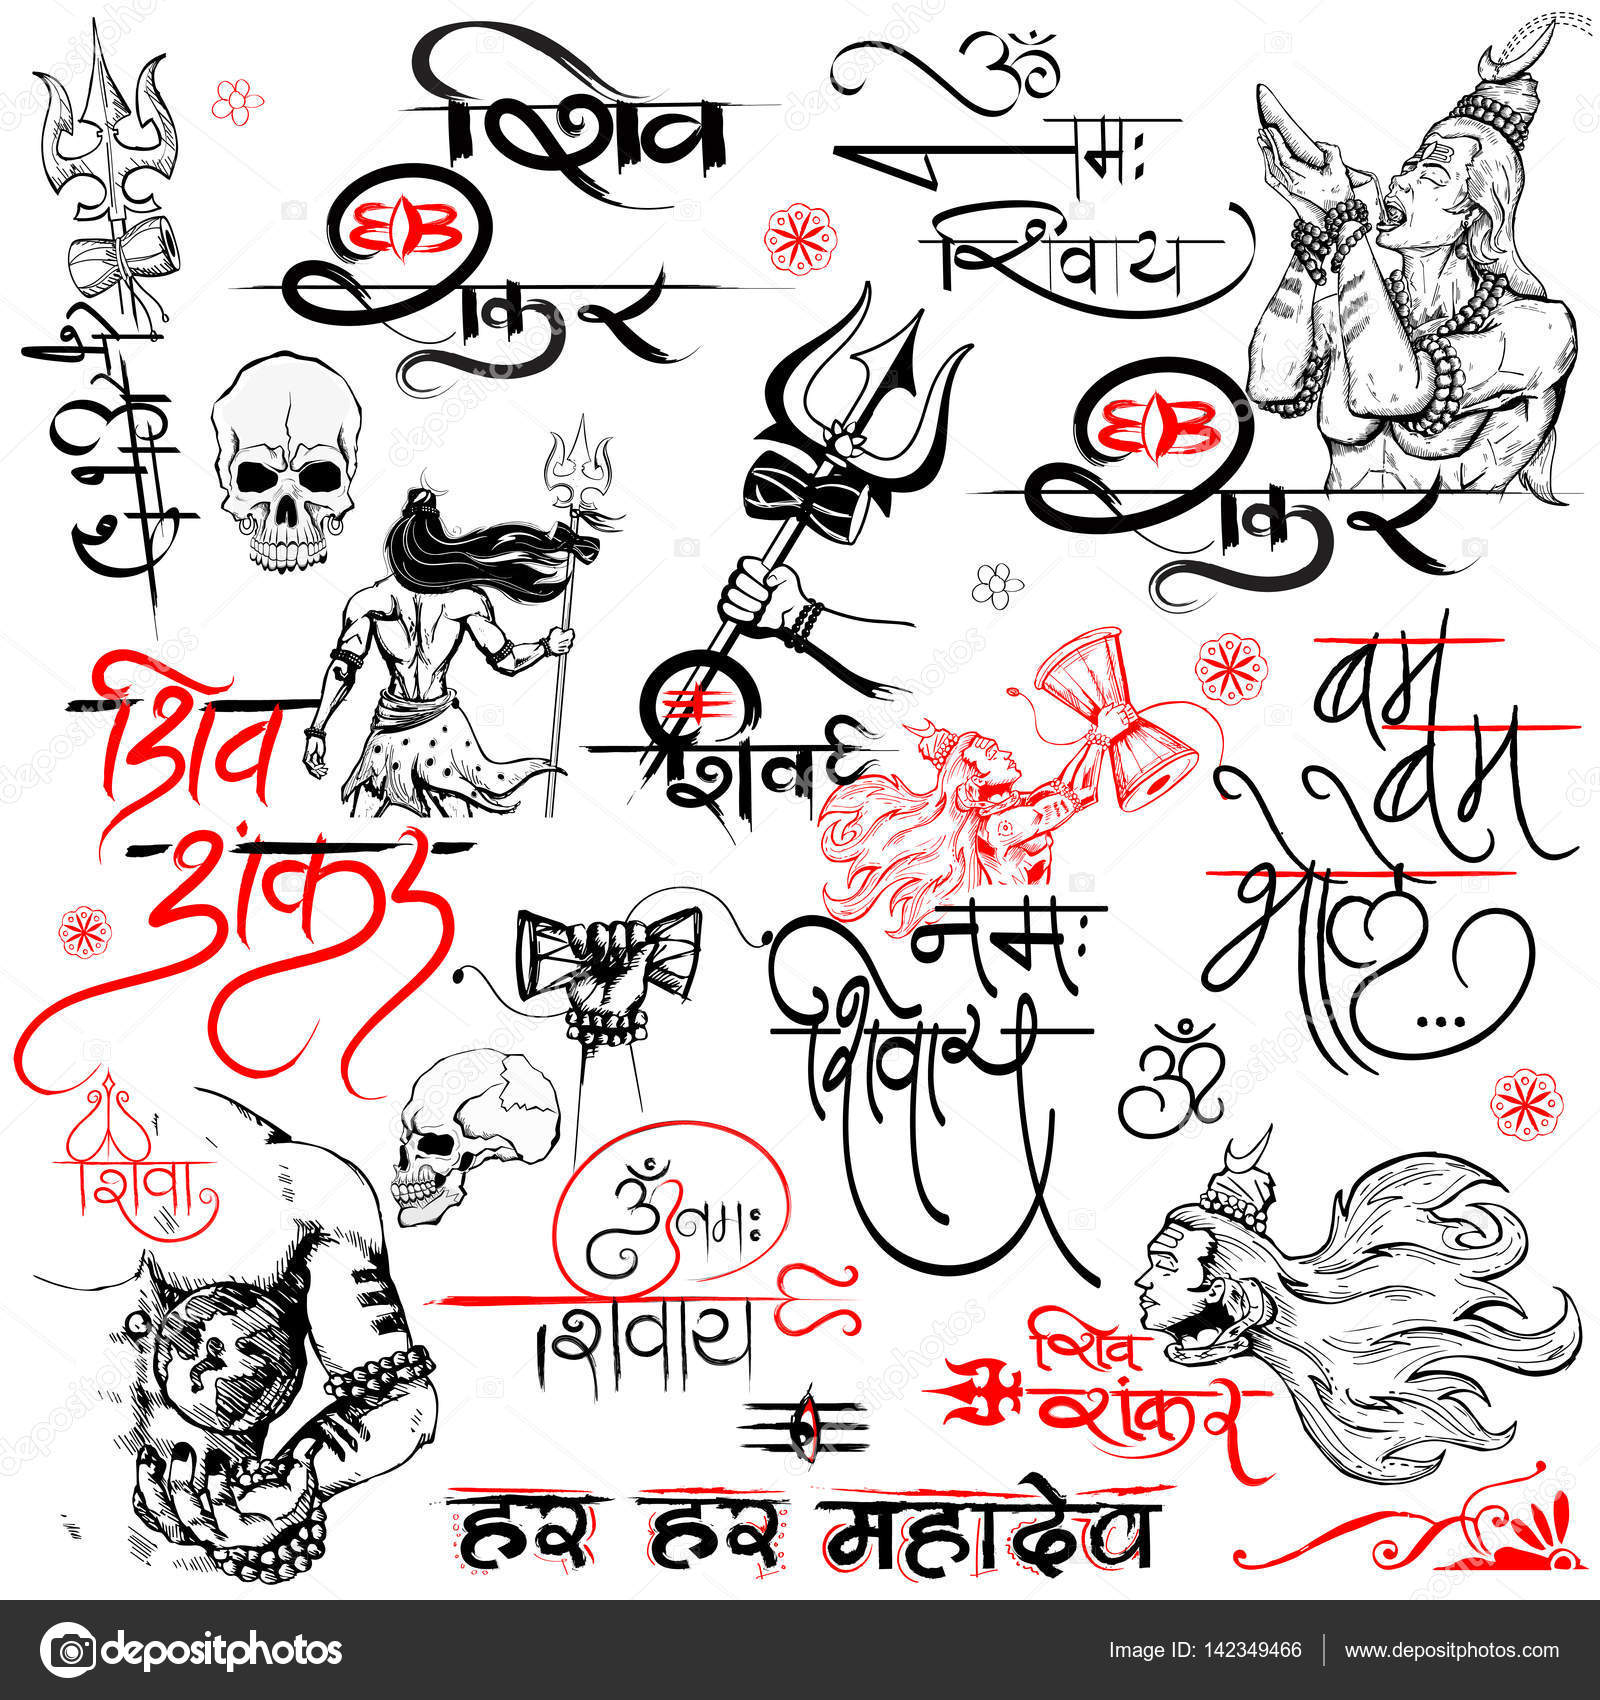 शिव
शंकर
ॐ
नमः
शिवाय
शंकर
शिव
शंकर
शिवा
बम
बम
भोले...
नमः
शिवाय
ॐ
शिवा
ॐ नमः
शिवाय
शिव
शंकर
हर हर महादेव
depositphotos
Image ID: 142349466
www.depositphotos.com